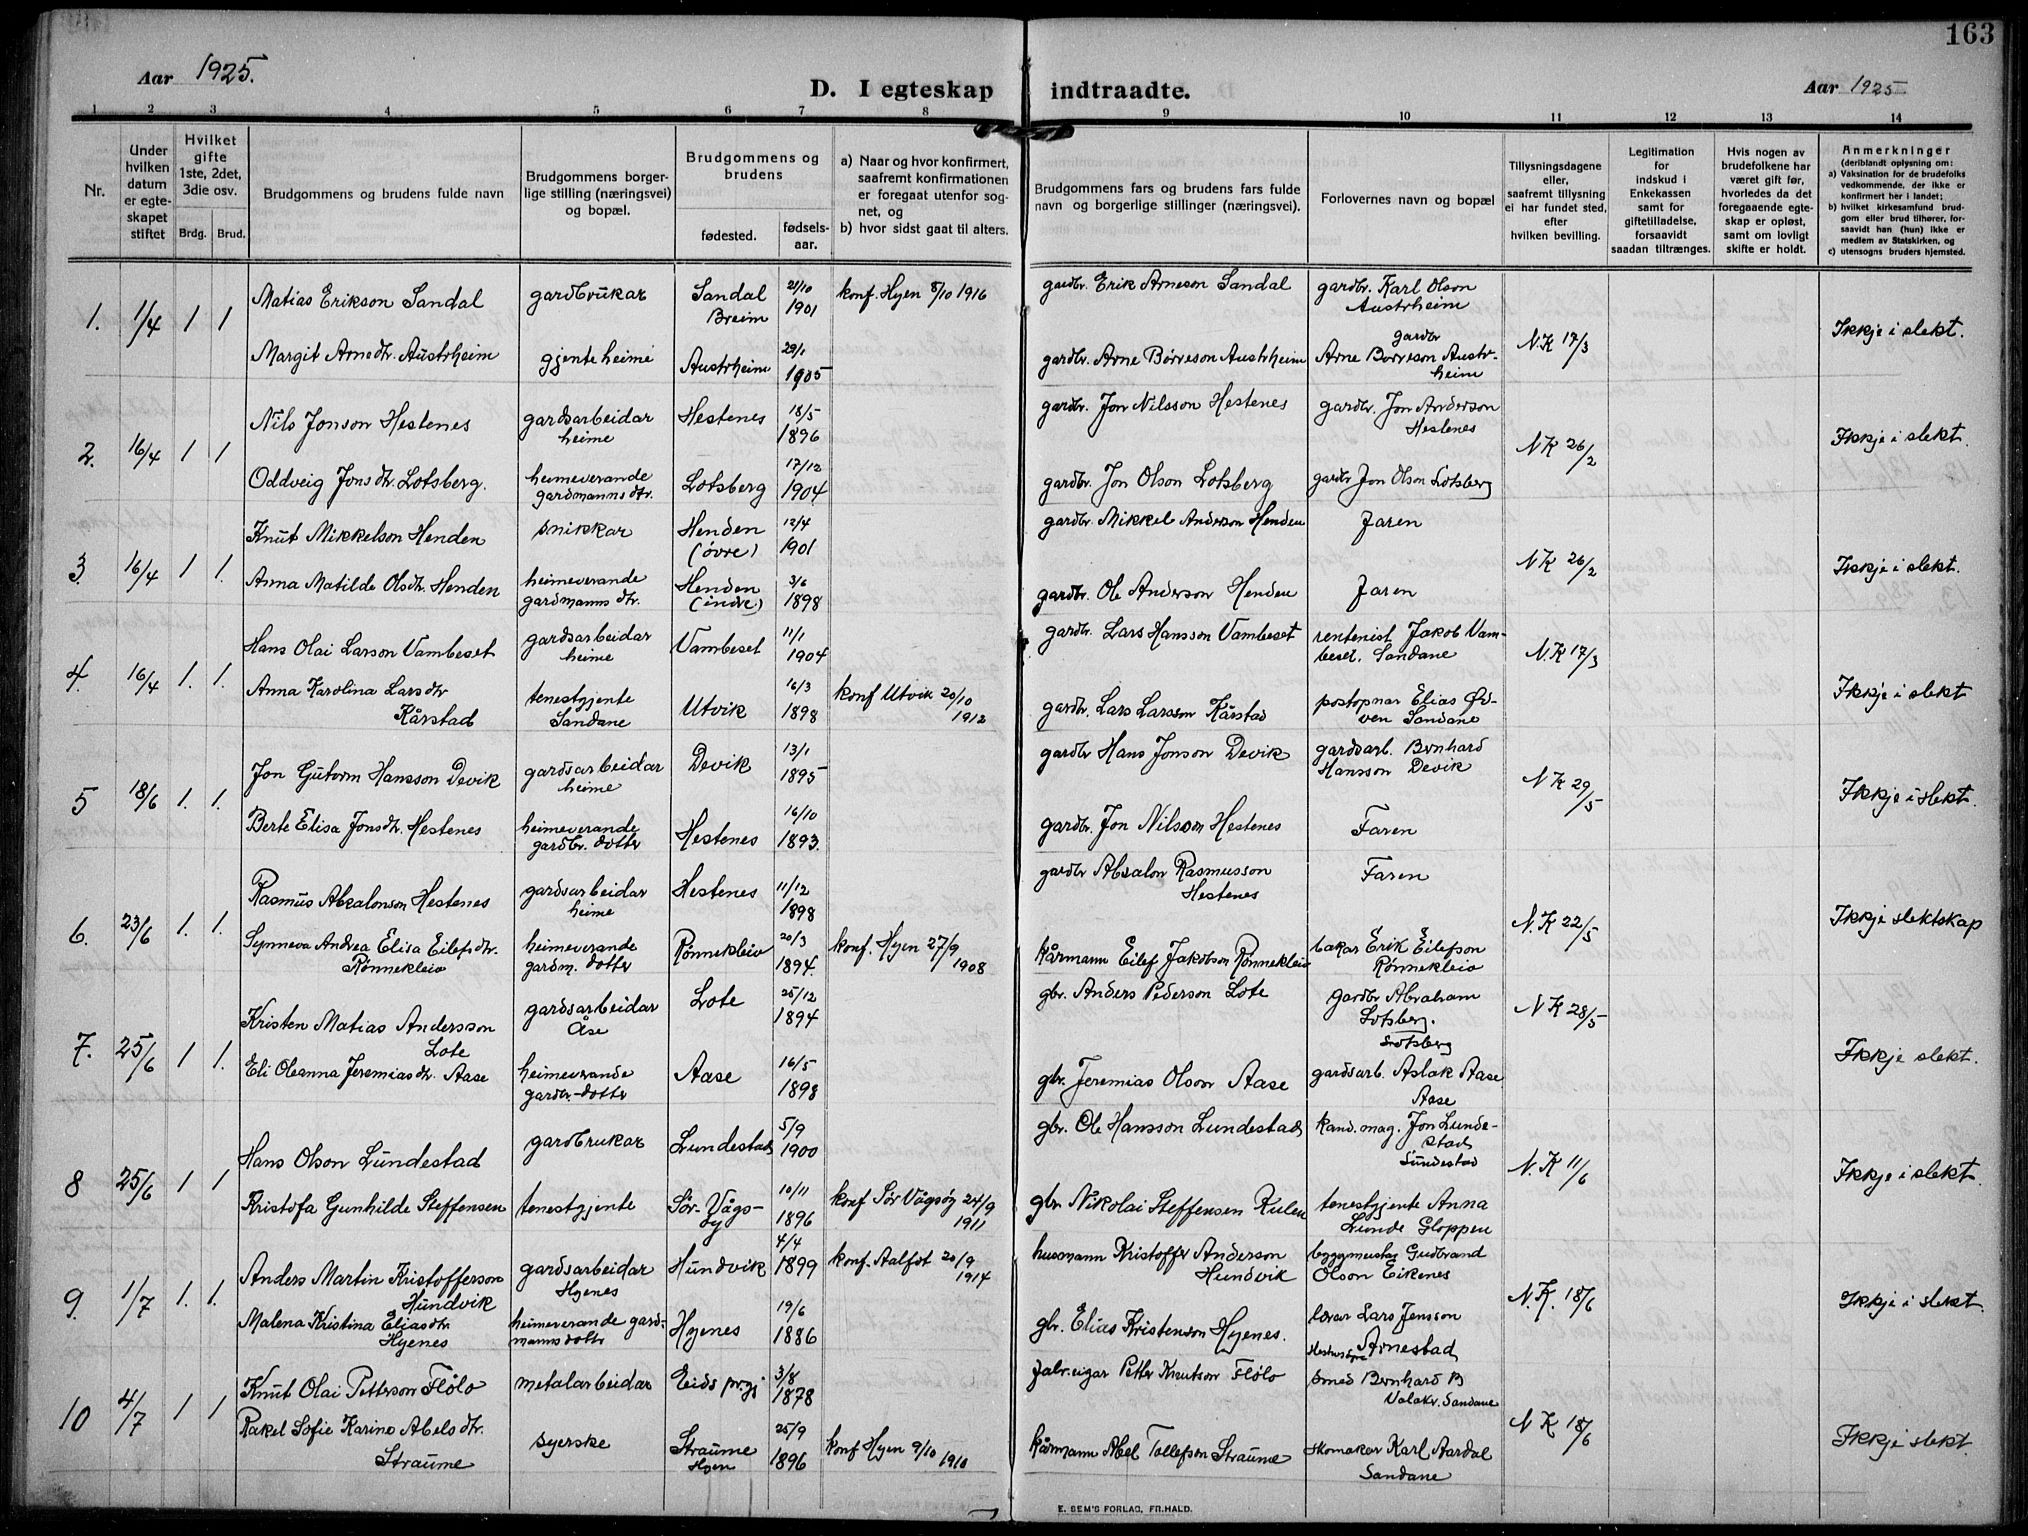 163
Aar 1925.
D. I egteskap indtraadte.
Aar 1925
1 2 3 4 5 6 7 8 9 10 11 12 13 14
Nr.
Under hvilken datum er egte-skapet stiftet
Hvilket gifte 1ste, 2det, 3die osv.
Brdg. Brud.
Brudgommens og brudens fulde navn
Brudgommens borger-lige stilling (næringsvei) og bopæl.
Brudgommens og brudens
fødested.
fødsels-aar.
a) Naar og hvor konfirmert, saafremt konfirmationen er foregaat utenfor sog-net, og
b) hvor sidst gaat til alters.
Brudgommens fars og brudens fars fulde navn og borgerlige stillinger (næringsvei).
Forlovernes navn og bopæl
Tillysningsdagene eller, saafremt tillysning ei har fundet sted, efter hvilken bevilling.
Legitimation for indskud i Enkekassen samt for giftetilladelse, forsaavidt saadan tiltrænges.
Hvis nogen av brudefolkene har været gift før, hvorledes da det foregaaende egte-skap er opløst, samt om lovligt skifte er holdt.
Anmerkninger
(deriblandt oplysning om:
a) Vaksination for de brudefolks vedkommende, der ikke er konfirmert her i landet;
b) hvilket kirkesamfund brud-gom eller brud tilhører, for-saavidt han (hun) ikke er medlem av Statskirken, og
c) utensogns bruders hjemsted.
1. 1/4 1 1
Matias Erikson Sandal gardbrukar Sandal Breim 21/10 1901 konf. Hyen 8/10 1916 gardbr. Erik Arneson Sandal gardbr. Karl Olson Austrheim
Margit Arnedtr. Austrheim gjente heime Austrheim 29/1 1905 gardbr. Arne Børreson Austrheim gardbr Arne Børreson Austr-heim N.K 17/3 Ikkje i slekt.
2. 16/4 1 1
Nils Jonson Hestenes gardsarbeidar heime Hestenes 18/5 1896 gardbr. Jon Nilsson Hestenes gardbr. Jon Anderson Hestenes
Oddveig Jonsdtr. Lotsberg. heimeverande gardmannsdtr. Lotsberg 17/12 1904 gardbr. Jon Olson Lotsberg gardbr Jon Olson Lotsberg N K 26/2 Ikkje i slekt.
3. 16/4 1 1.
Knut Mikkelson Henden snikkar Henden (øvre) 12/4 1901 gardbr. Mikkel Anderson Henden Faren
Anna Matilde Olsdtr. Henden heimeverande gardmanns dtr. Henden (indre) 3/6 1898 gardbr. Ole Anderson Henden Faren N K 26/2 Ikkje i slekt.
4. 16/4 1. 1.
Hans Olai Larson Vambeset gardsarbeidar heime Vambeset 11/1 1904 gardbr. Lars Hansson Vambeset rentenist Jakob Vam-beset. Sandane
Anna Karolina Larsdtr Kårstad tenestgjente Sandane Utvik 16/3 1898 konf Utvik 20/10 1912 gardbr. Lars Larsson Kårstad postopnar Elias Ød-ven Sandane N.K 17/3 Ikkje i slekt
5 18/6 1. 1.
Jon Gutorm Hansson Devik gardsarbeidar heime Devik 13/1 1895 gardbr Hans Jonson Devik gardsarb. Bernhard Hansson Devik
Berte Elisa Jonsdtr. Hestenes heimeverande gardbr. dotter Hestenes 16/10 1893. gardbr. Jon Nilsson Hestenes Faren N K 29/5 Ikkje i slekt.
6. 23/6 1. 1.
Rasmus Absalonson Hestenes gardsarbeidar heime Hestenes 11/12 1898 gardbr Absalon Rasmusson Hestenes Faren
Synneva Andrea Elisa Eilefsdtr. Rønnekleiv heimeverande gardm. dotter Rønnekleiv 20/3 1894. konf. Hyen 27/9 1908 kårmann Eilef Jakobson Rønnekleiv bakar Erik Eilefson Rønnekleiv N.K 22/5 Ikkje slektskap
7. 25/6 1 1.
Kristen Matias Andersson Lote gardsarbeidar Åse Lote 25/12 1894 gbr. Anders Pederson Lote gardbr Abraham Lotsberg. Lotsberg
Eli Oleanna Jeremiasdtr. Aase heimeverande gardbr.-dotter Aase 16/5 1898 gbr. Jeremias Olson Aase gardsarb. Aslak Aase Aase N K 28/5 Ikkje slekt.
8 25/6 1 1
Hans Olson Lundestad gardbrukar Lundestad 5/9 1900 gbr. Ole Hansson Lundestad kand. mag. Jon Lunde-stad Lundestad
Kristofa Gunhilde Steffensen tenestgjente Sør-Vågs-øy 10/11 1896 konf Sør Vågsøy 24/9 1911 gbr. Nikolai Steffensen Rulen tenestgjente Anna Lunde Gloppen N. K 11/6 Ikkje i slekt.
9. 1/7 1. 1.
Anders Martin Kristofferson Hundvik gardsarbeidar Hyenes Hundvik 4/4 1899 konf. Aalfot 20/9 1914 husmann Kristoffer Anderson Hundvik byggmester Gudbrand Olson Eikenes
Malena Kristina Eliasdtr Hyenes heimeverande gard-manns dotter Hyenes 19/6 1886 gbr. Elias Kristenson Hyenes. lærar Lars Jensson Arnestad N.K. 18/6 Ikkje i slekt.
10 4/7 1 1
Knut Olai Petterson Flølo metalarbeidar Eids prgj 3/8 1878 fabr.eigar Petter Knutson Flølo smed Bernhard B Valaker. Sandane
Rakel Sofie Karine Abelsdtr. Straume syerske Straume Hyen 25/9 1896 konf Hyen 9/10 1910 kårmann Abel Tollefson Straume skomakar Karl Aardal Sandane N K 18/6 Ikkje slekt.
E. SEM'S FORLAG, FR.HALD.